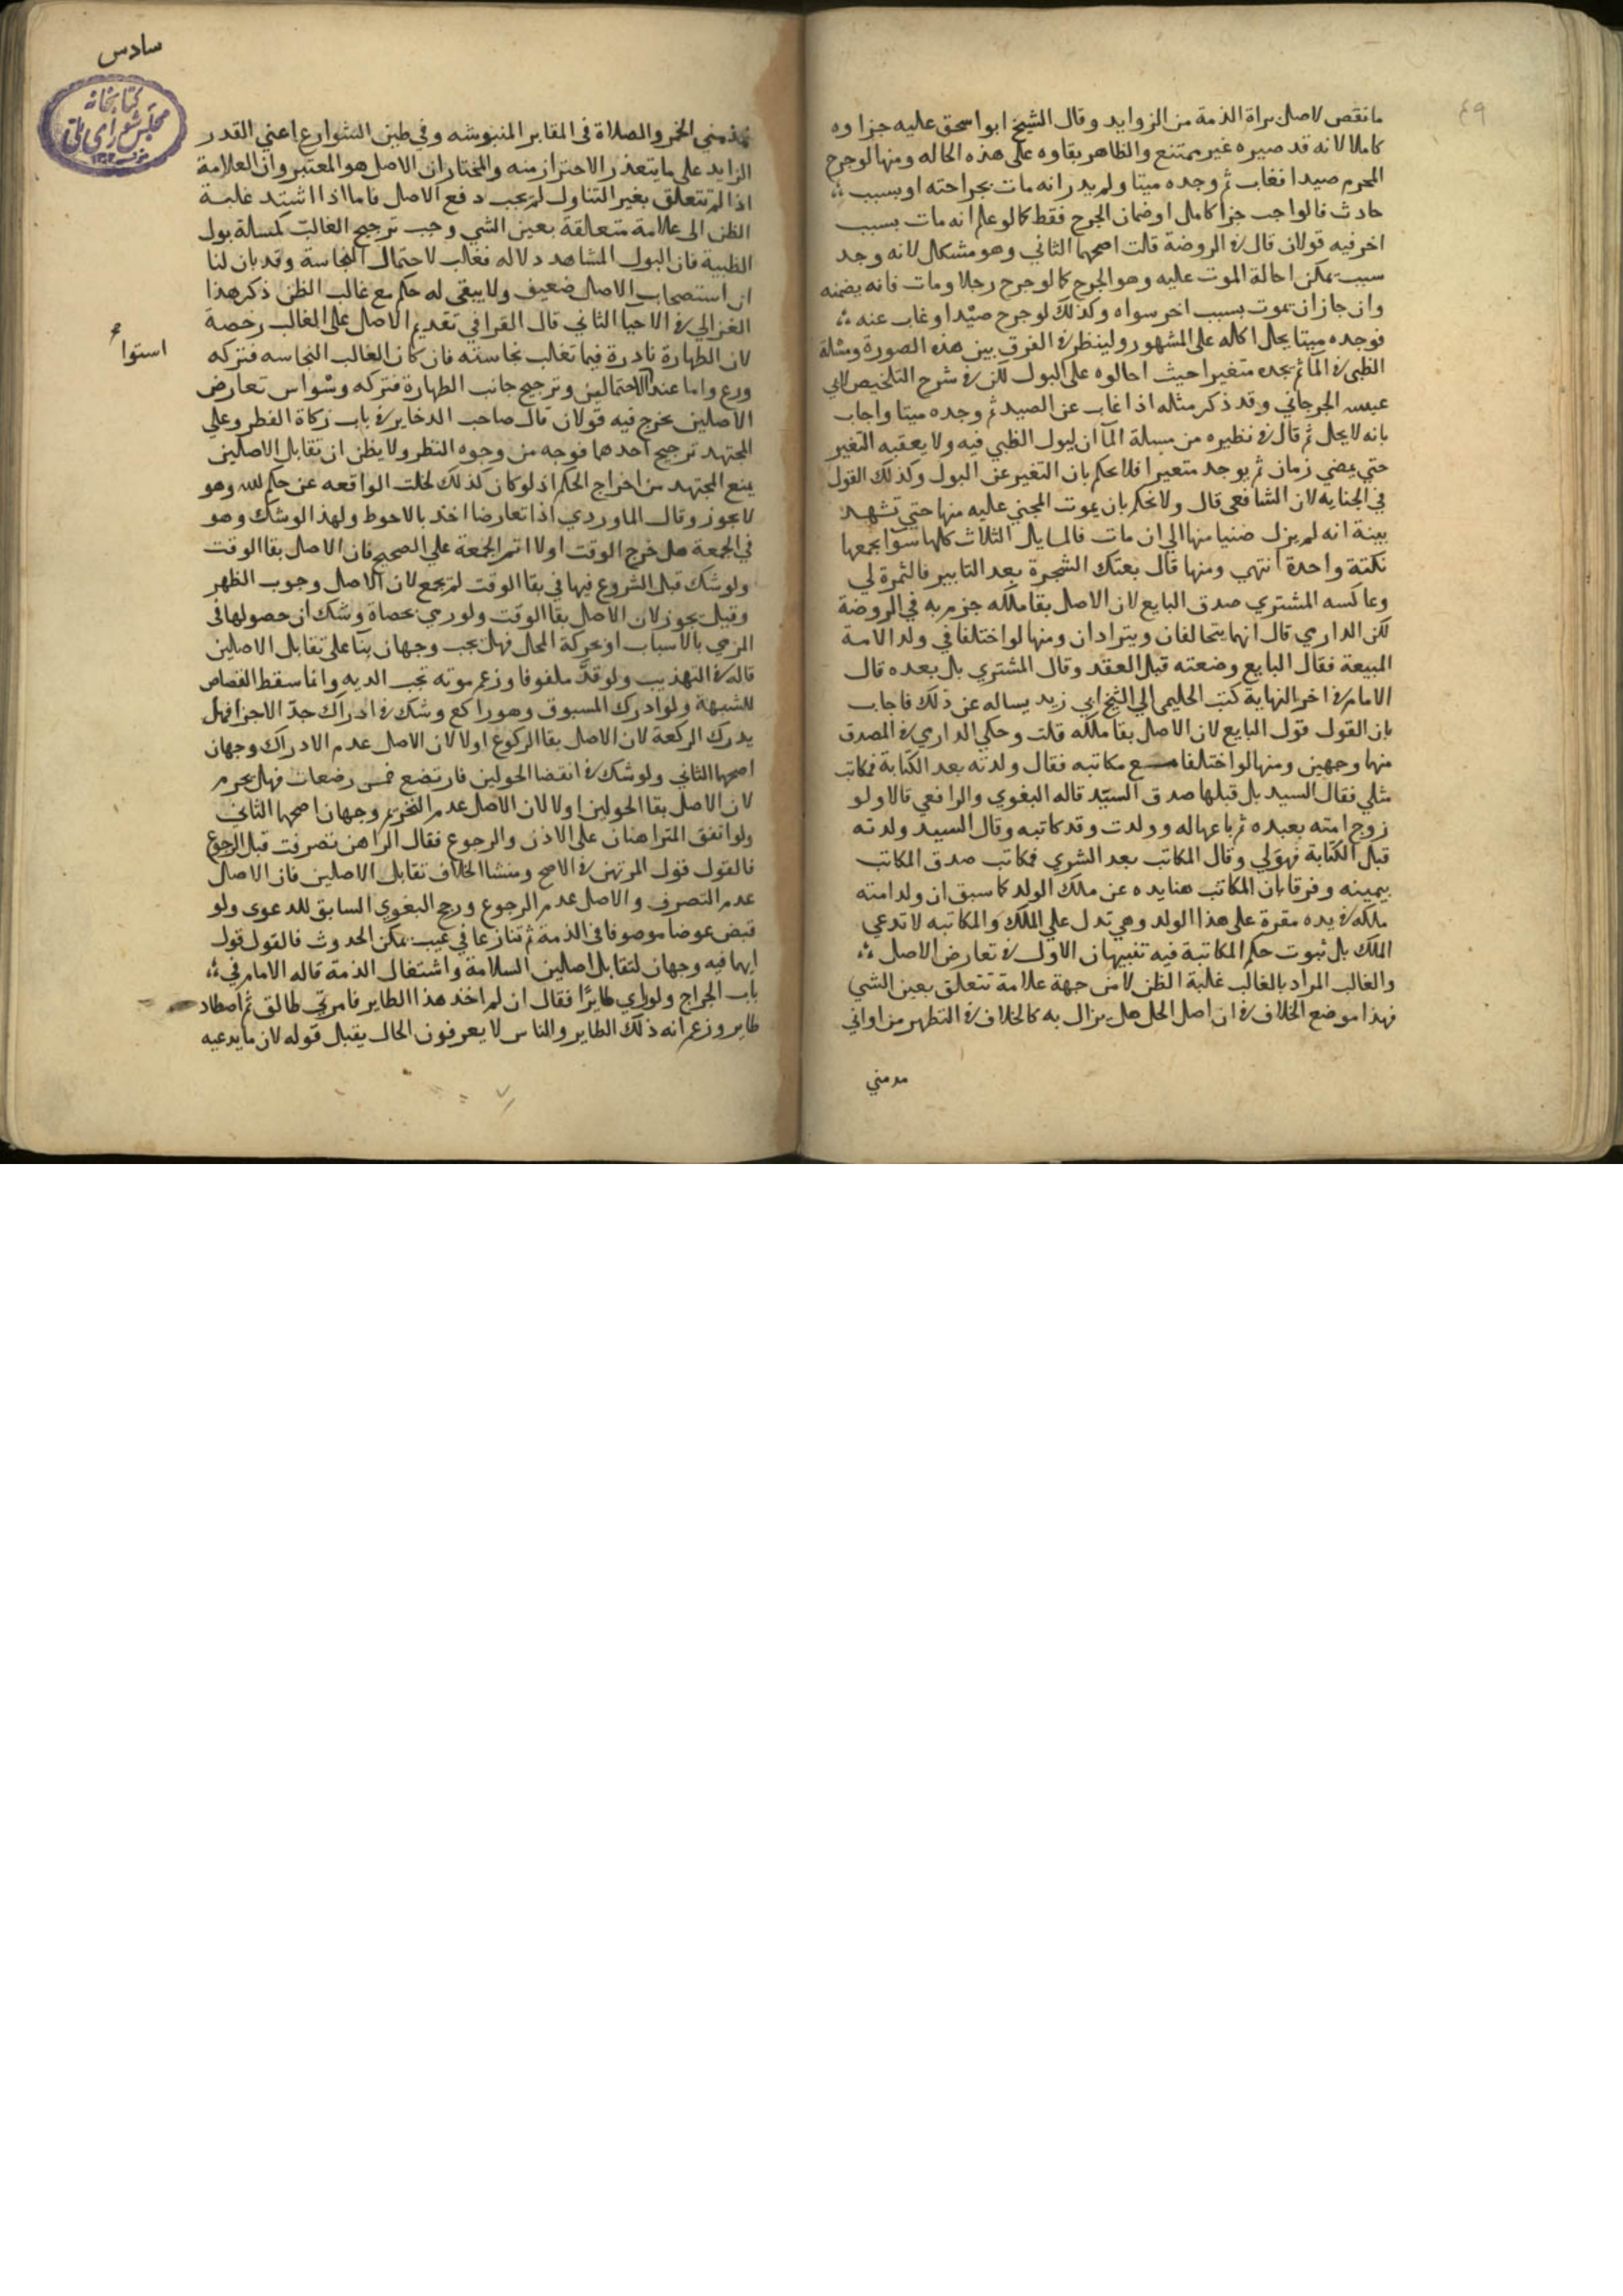 ٤٩
ما نقص لاصل براة الذمة من الزوايد وقال الشيخ ابو اسحق عليه جزاوه
كاملا لانه قد صيره غير ممتنع والظاهر بقاوه على هذه الحاله ومنها لو جرح
المحرم صيدا فغاب ثم وجده ميتا ولم يدر انه مات بجراحته او بسبب
حادث فالواجب جزا كامل او ضمان الجرح فقط كما لو علم انه مات بسبب
اخر فيه قولان قال في الروضة قلت اصحهما الثاني وهو مشكل لانه وجد
سبب يمكن احالة الموت عليه وهو الجرح كما لو جرح رجلا ومات فانه يضمنه
وان جاز ان يموت بسبب اخر سواه وكذلك لو جرح صيدا وغاب عنه
فوجده ميتا يحل اكله على المشهور ولينظر في الفرق بين هذه الصورة ومسئلة
الظبي في الما ثم يجده متغيرا حيث احالوه على البول لكن في شرح التلخيص لابي
الجرجاني وقد ذكر مثله اذا غاب عن الصيد ثم وجده ميتا واجاب
بانه لا يحل ثم قال في نظيره من مسلة المآ ان يبول الظبي فيه ولا يعقبه التغير
حتي يمضي زمان ثم يوجد متغيرا فلا يحكم بان التغير عن البول وكذلك القول
في الجنايه لان الشافعي قال ولا نحكم بان يموت المجني عليه منها حتي تشهد
بينة انه لم يزل ضنيا منها الي ان مات فالمسايل الثلاث كلها سوا يجمعها
نكتة واحدة انتهي ومنها قال بعتك الشجرة بعد التابير فالثمرة لي
وعاكسه المشتري صدق البايع لان الاصل بقا ملكه جزم به في الروضة
لكن الدارمي قال انهما يتحالفان ويترادان ومنها لو اختلفا في ولد الامة
المبيعة فقال البايع وضعته قبل العقد وقال المشتري بل بعده قال
الامام في اخر النهاية كتب الحليمي الي الشيخ ابي زيد يساله عن ذلك فاجاب
بان القول قول البايع لان الاصل بقا ملكه قلت وحكي الدارمي في المصدق
منها وجهين ومنها لو اختلفا مع مكاتبه فقال ولدته بعد الكتابة فمكاتب
مثلي فقال السيد بل قبلها صدق السيد قاله البغوي والرافعي قالا ولو
زوج امته بعبده ثم باعها له وولدت وقد كاتبه وقال السيد ولدته
قبل الكتابة فهو لي وقال المكاتب بعد الشري فكاتب صدق المكاتب
بيمينه وفرقا بان المكاتب هنا يده عن ملك الولد كما سبق ان ولد امته
ملكه في يده مقرة على هذا الولد وهي تدل علي الملك والمكاتبه لا تدعي
الملك بل ثبوت حكم المكاتبة فيه تنبيهان الاول في تعارض الاصل
والغالب المراد بالغالب غلبة الظن لا من جهة علامة تتعلق بعين الشي
فهذا موضع الخلاف في ان اصل الحل هل يزال به كالخلاف في التطهر من اواني
مدمني
سادس
كتابخانه
مجلس شورای ملی
مدمني الخمر والصلاة في المقابر المنبوشه وفي طين الشوارع اعني القدر
الزايد على ما يتعذر الاحتراز منه والمختار ان الاصل هو المعتبر وان العلامة
اذا لم تتعلق بغير التناول لم يجب دفع الاصل فاما اذا اشتد غلبة
الظن الى علامة متعلقة بعين الشي وجب ترجيح الغالب كمسالة بول
الظبية فان البول المشاهد دلاله فغالب لاحتمال النجاسة وقد بان لنا
ان استصحاب الاصل ضعيف ولا يبقى له حكم مع غالب الظن ذكر هذا
الغزالي في الاحيا الثاني قال القرافي تقديم الاصل على الغالب رخصة
لان الطهارة نادرة فيما تغلب نجاسته فان كان الغالب النجاسه فتركه
ورع واما عند الاحتمالين وترجيح جانب الطهارة فتركه وسواس تعارض
استوا
الاصلين يخرج فيه قولان قال صاحب الدخاير في باب زكاة الفطر وعلي
المجتهد ترجيح احدهما فوجه من وجوه النظر ولا يظن ان تقابل الاصلين
يمنع المجتهد من اخراج الحكم اذ لو كان كذلك لخلت الواقعه عن حكم لله وهو
لا يجوز وقال الماوردي اذا تعارضا اخذ بالاحوط ولهذا لو شك وهو
في الجمعة هل خرج الوقت اولا اتم الجمعة علي الصحيح فان الاصل بقا الوقت
ولو شك قبل الشروع فيها في بقا الوقت لم يجمع لان الاصل وجوب الظهر
وقيل يجوز لان الاصل بقا الوقت ولو رمي بحصاة وشك ان حصولها في
المرمي بالاسباب او بحركة المحل فهل يجب وجهان بنا على تقابل الاصلين
قاله في التهذيب ولو قد ملفوفا وزعم موته تجب الديه وانما سقط القصاص
للشبهة ولو ادرك المسبوق وهو راكع وشك في ادراك حد الاجزا فهل
يدرك الركعة لان الاصل بقا الركوع اولا لان الاصل عدم الادراك وجهان
اصحهما الثاني ولو شك في انقضا الحولين فارتضع خمس رضعات فهل يحرم
لان الاصل بقا الحولين اولا لان الاصل عدم التحريم وجهان اصحهما الثاني
ولو اتفق المتراهنان على الاذن والرجوع فقال الراهن تصرفت قبل الرجوع
فالقول قول المرتهن في الاصح ومنشا الخلاف تقابل الاصلين فان الاصل
عدم التصرف والاصل عدم الرجوع ورجح البغوي السابق للدعوى ولو
قبض عوضا موصوفا في الذمة ثم تنازعا في عيب يمكن الحدوث فالقول قول
ايهما فيه وجهان لتقابل اصلين السلامة واشتغال الذمة قاله الامام في
باب الخراج ولو راي طايرا فقال ان لم اخذ هذا الطاير فامرتي طالق ثم اصطاد
طاير وزعم انه ذلك الطاير والناس لا يعرفون الحال يقبل قوله لان ما يدعيه